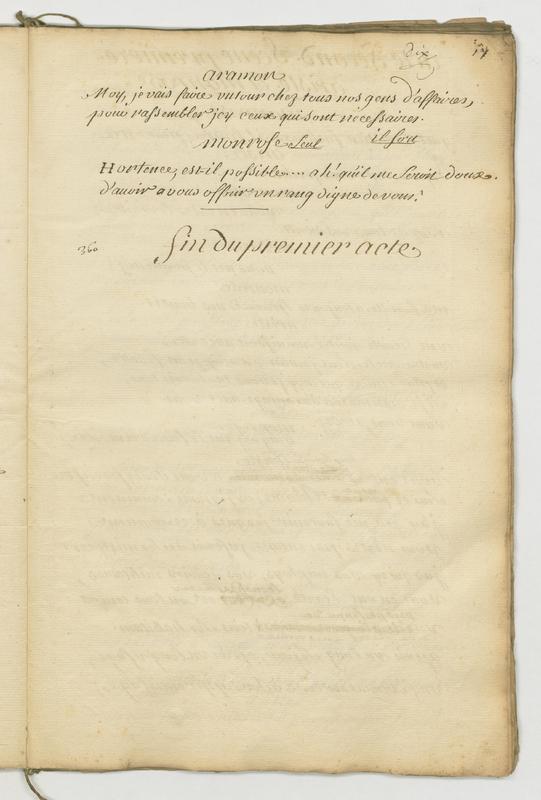 Dix
17
aramon
Moy, je vais faire un tour chez tous nos gens d'affaires,
pour rassembler jcy ceux qui sont nécessaires.
il sort
monrose seul
Hortence, est-il possible.... ah! qu'il me seroit doux.
d'avoir a vous offrir un rang digne de vous!
360
fin du premier acte